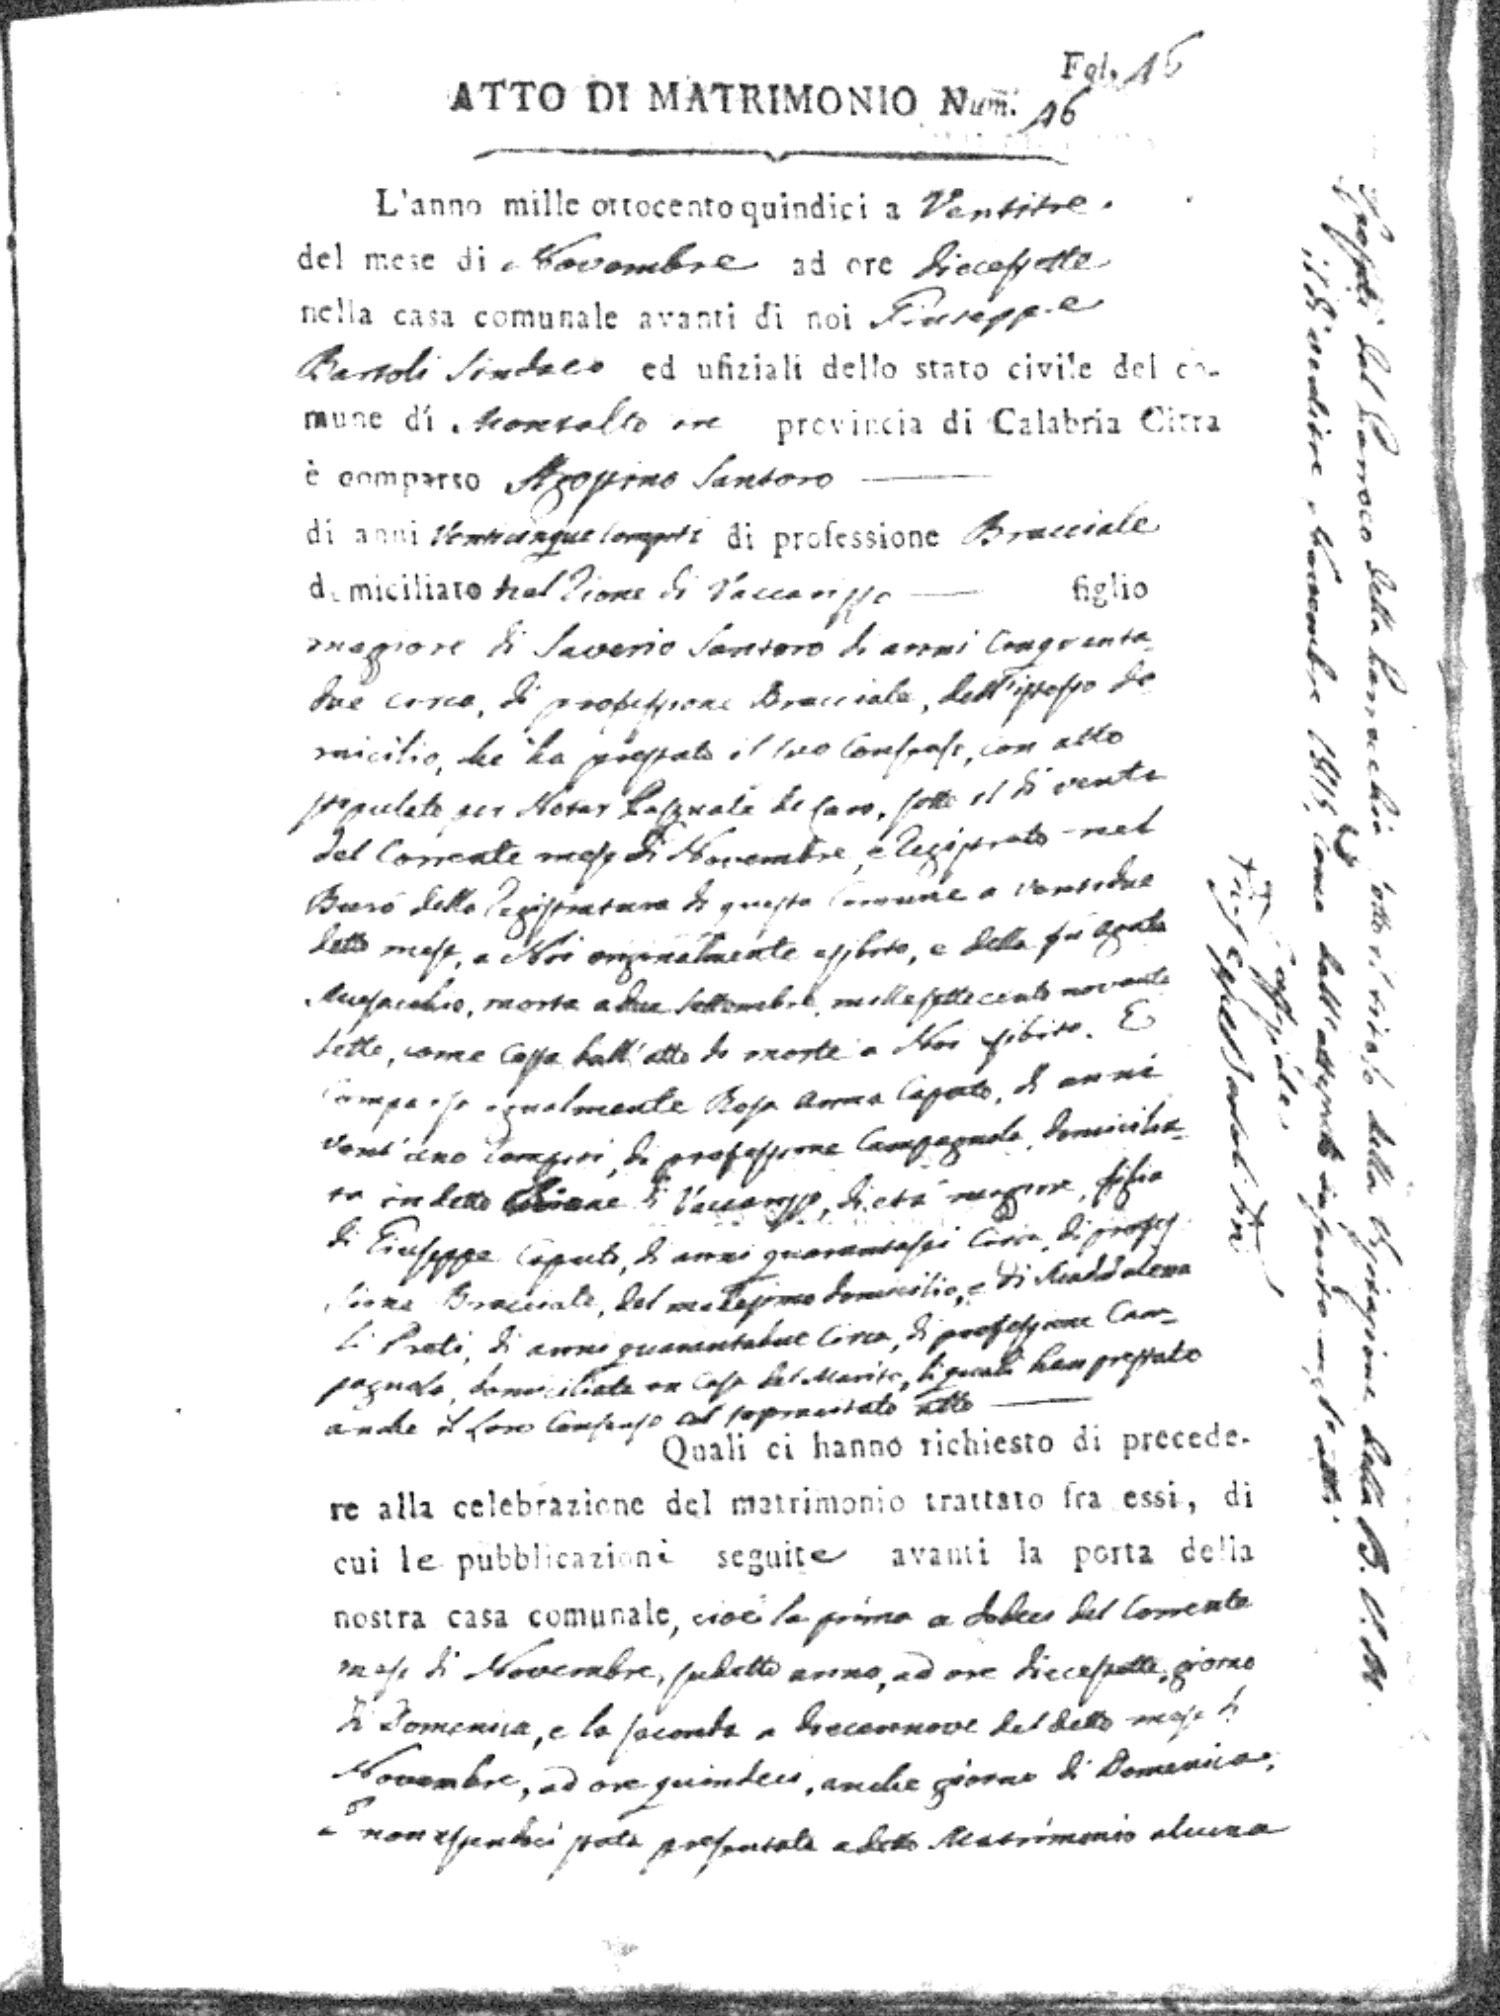 Fol. 16
ATTO DI MATRIMONIO Num. 16
L'anno mille ottocento quindici a Ventitre
del mese di Novembre ad ore diecessette
nella casa comunale avanti di noi Giuseppe
Bartoli Sindaco ed ufiziali dello stato civile del co-
mune di Montalto in provincia di Calabria Citra
è comparso Agostino Santoro
di anni Venticinque compiti di professione Bracciale
domiciliato nel Rione di Vaccarizzo figlio
maggiore di Saverio Santoro di anni Cinquanta
due circa, di professione Bracciale, dell'istesso do
micilio, che ha prestato il suo Consenso, con atto
stipulato per Notar Pasquale de Caro, sotto il dì venti
del Corrente mese di Novembre, e Registrato nel
Burò della Registratura di questa Comune a ventidue
detto mese, a Noi originalmente esibito, e della fu Agata
Musacchio, morta a due Settembre, mille settecento novanta
sette, come costa dall'atto di morte a Noi esibito. E
Comparsa egualmente Rosa Anna Caputo, di anni
vent'uno compiti, di professione Campagnola, domicilia-
ta in detto Rione di Vaccarizzo, di età maggiore, figlia
di Giuseppe Caputo, di anni quarantasei Circa, di profes
sione Bracciale, del medesimo domicilio, e di Maddalena
li Preti, di anni quarantadue Circa, di professione Cam-
pagnola, domiciliata in Casa del Marito, li quali han prestato
anche il loro Consenso col sopracitato atto
Quali ci hanno richiesto di precede-
re alla celebrazione del matrimonio trattato fra essi, di
cui le pubblicazioni seguite avanti la porta della
nostra casa comunale, cioè la prima a dodeci del Corrente
mese di Novembre, sudetto anno, ad ore diecessette, giorno
di Domenica, e la seconda a diecennove del detto mese di
Novembre, ad ore quindeci, anche giorno di Domenica,
E non essendoci stata presentata a detto Matrimonio alcuna
dal Parroco della Parrocchia sotto il titolo della della B. V. M.
il dì ventitre Novembre 1815, Come dall'attestato
Giuseppe Bartoli Sin